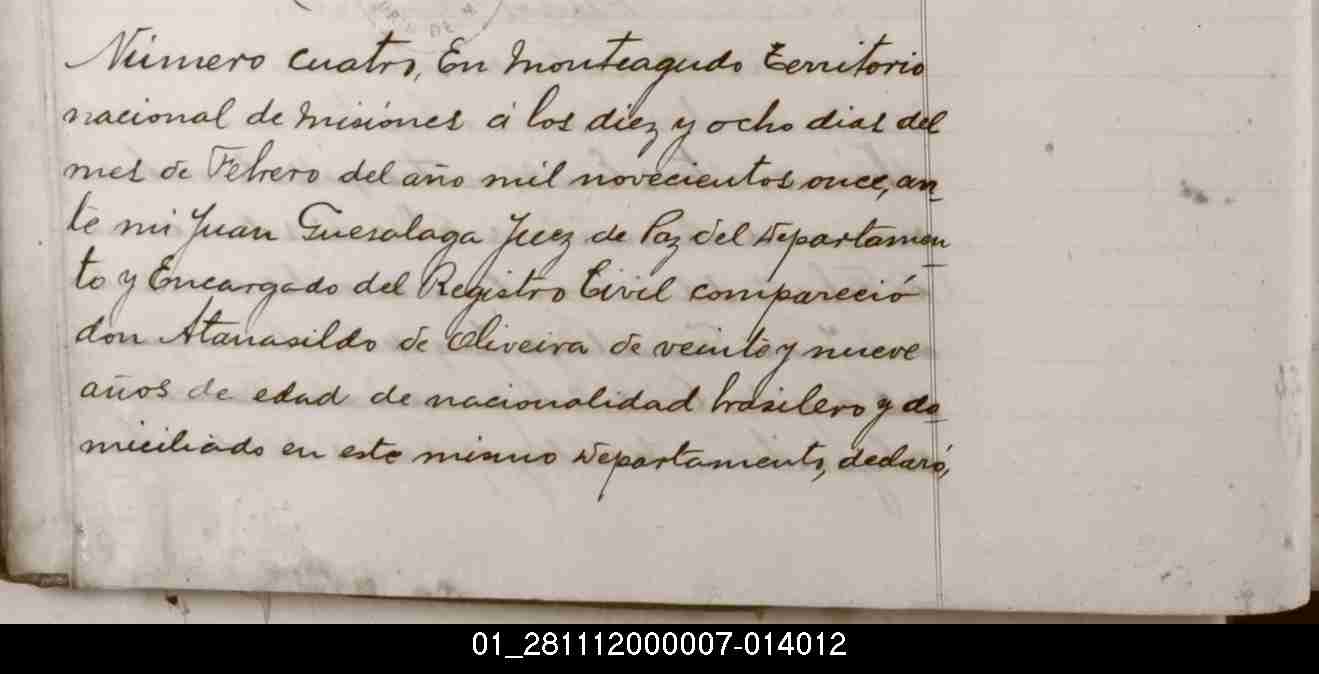 Número cuatro, En Monteagudo Territorio
nacional de Misiónes á los diez y ocho dias del
mes de Febrero del año mil novecientos once, an
te mi Juan Guesalaga Juez de Paz del Departamen
to y Encargado del Registro Civil compareció
don Atanasildo de Oliveira de veinte y nueve
años de edad de nacionalidad brasilero y do
miciliado en este mismo Departamento, declaró,
01_281112000007-014012